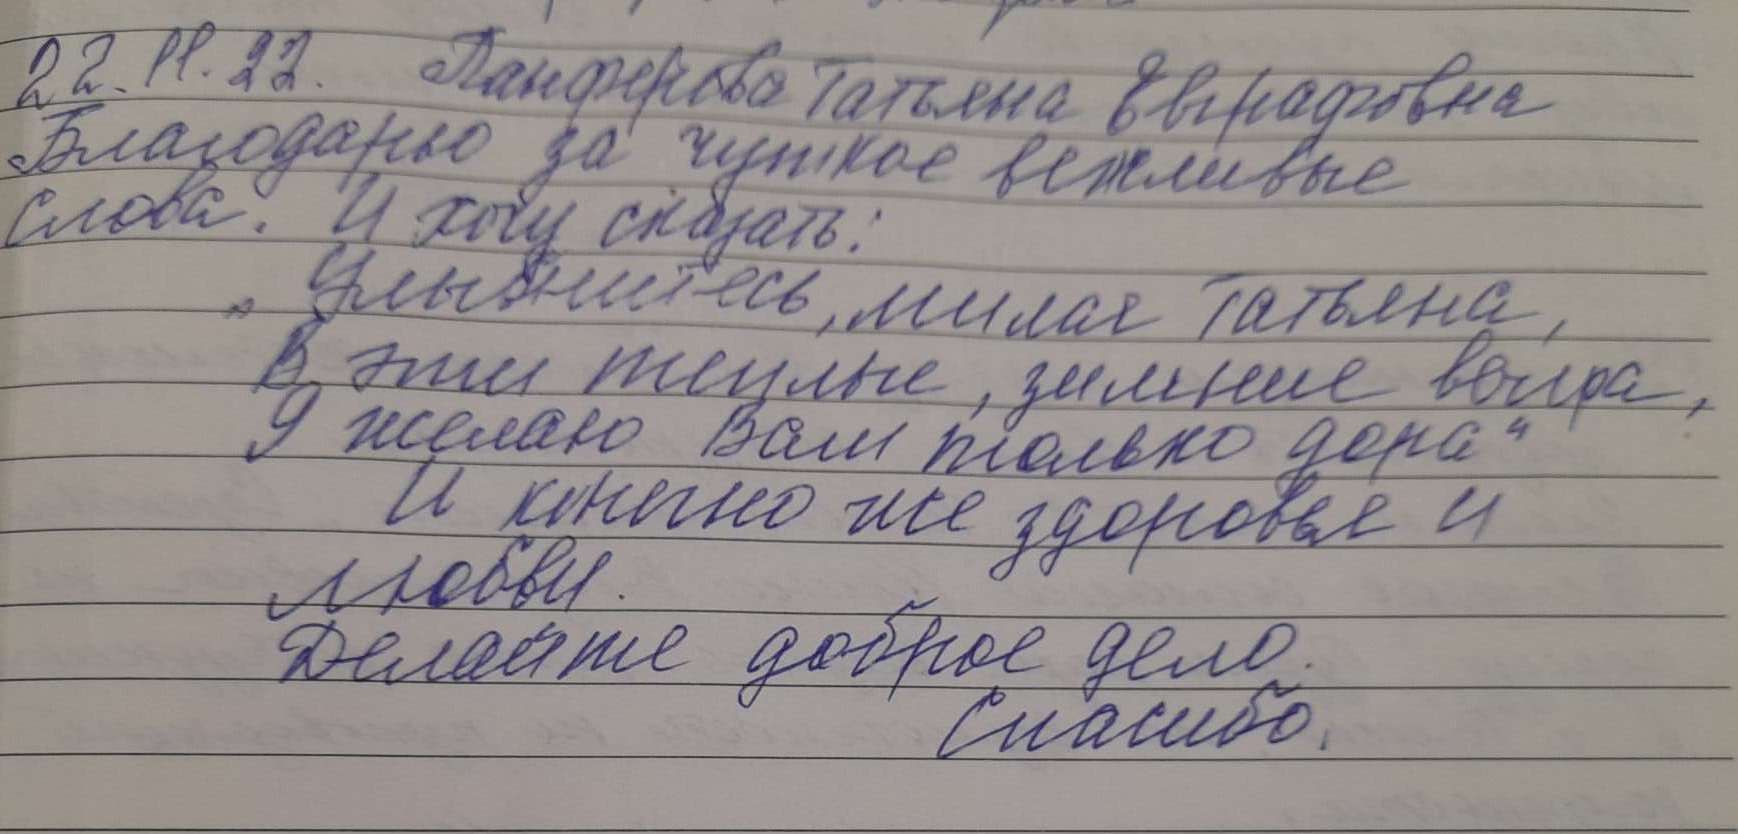 22.11.22. Панферова Татьяна Евграфовна
Благодарю за чуткое вежливые
слова. И хочу сказать:
„Улыбнитесь, милая Татьяна,
В эти теплые, зимние вечера,
Я желаю Вам только добра"
И конечно же здоровье и
любви.
Делайте доброе дело.
Спасибо.